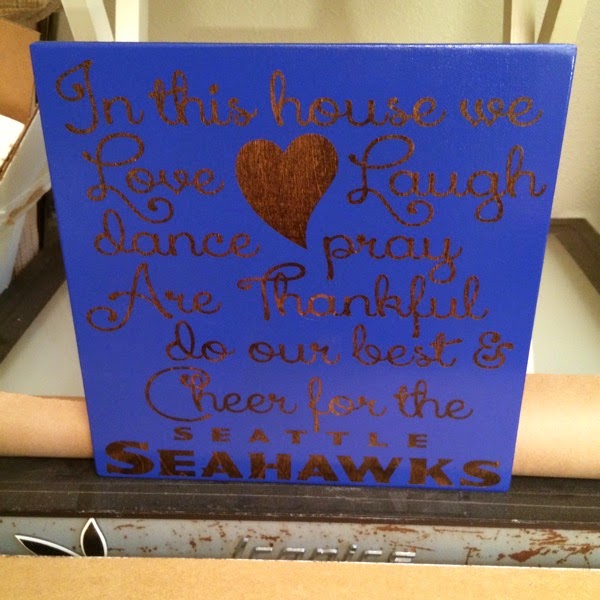 In this house we
Love Laugh
dance pray
Are Thankful
do our best &
Cheer for the
SEATTLE
SEAHAWKS